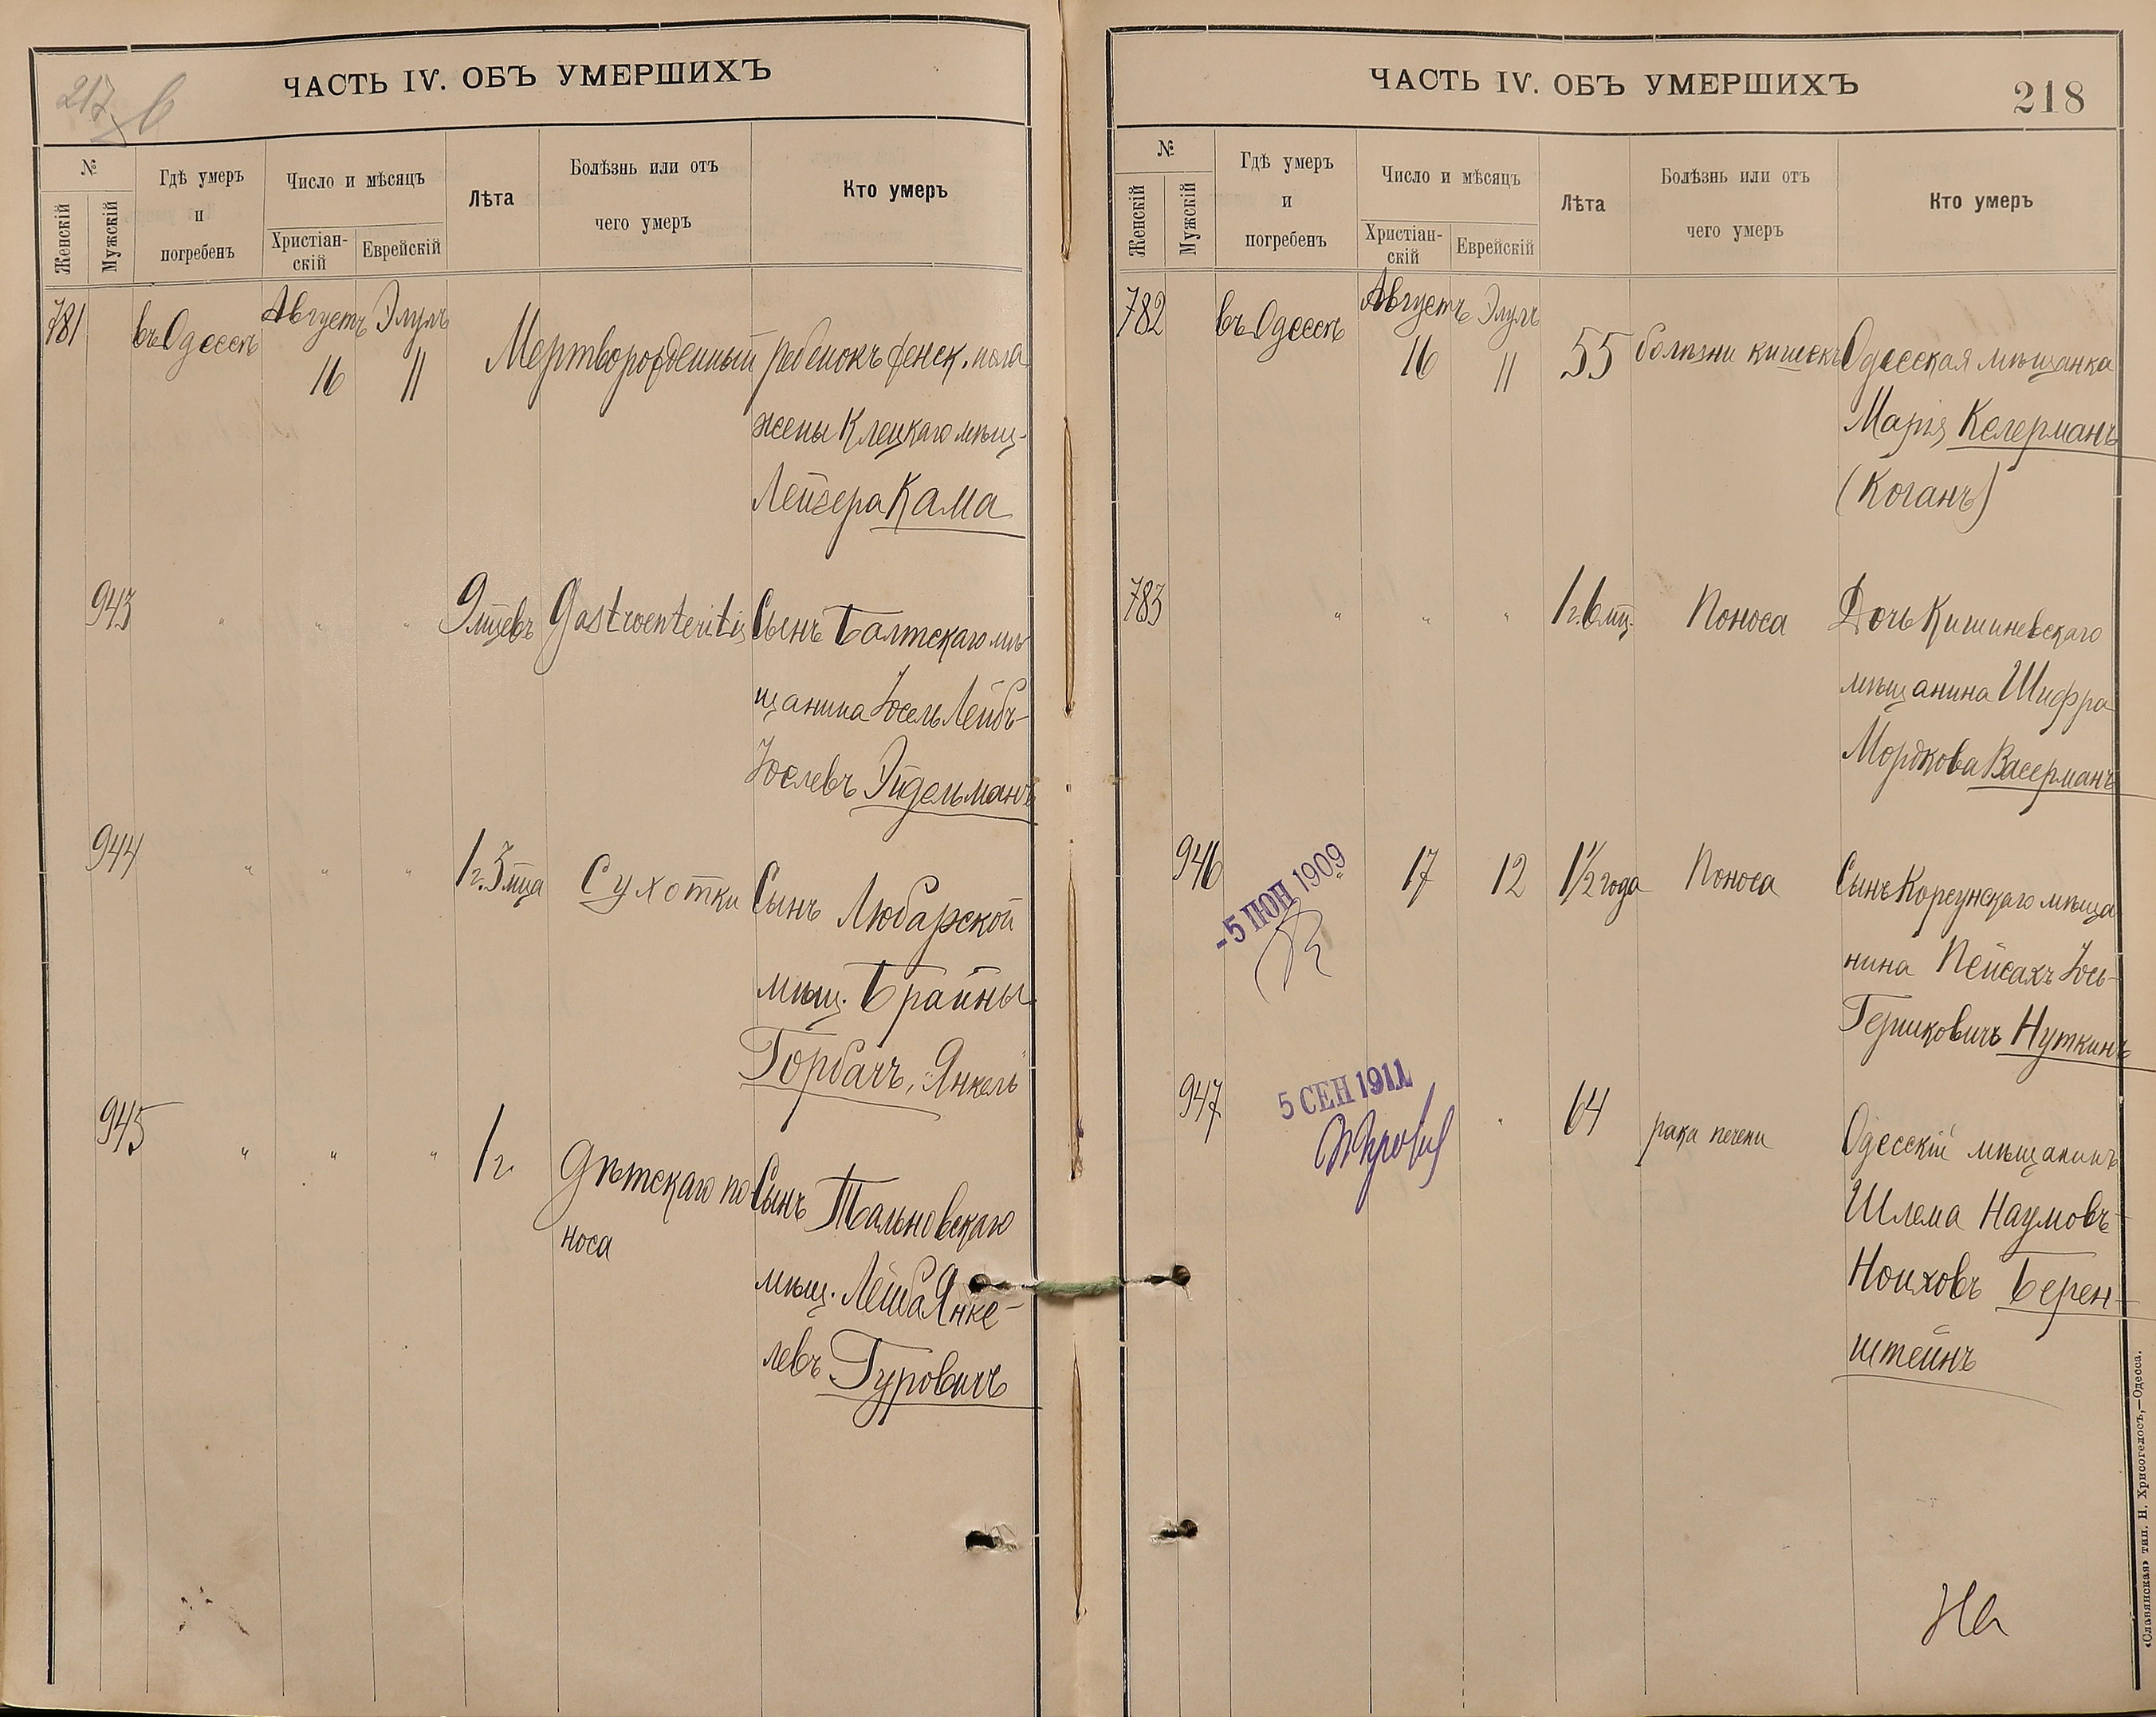 217
ЧАСТЬ IV. ОБЪ УМЕРШИХЪ
№
Женскій
Мужскій
Гдѣ умеръ
и
погребенъ
Число и мѣсяцъ
Христіан-
скій
Еврейскій
Лѣта
Болѣзнь или отъ
чего умеръ
Кто умеръ
781 въ Одессѣ Августъ Элулъ
16 11 Мертворожденный ребенокъ женск. пола
жены Клецкаго мѣщ.
Лейзера Кама
943 " " " 9 мцевъ Gastroenteritis Сынъ Балтскаго мѣ-
щанина Іосель Лейбъ-
Іослевъ Эйдельманъ
944 " " " 1 г. 3 мца Сухотки Сынъ Любарской
мѣщ. Брайны
Горбачъ, "Янкель"
945 " " " 1 г. Дѣтскаго по- Сынъ Тальновскаго
носа
мѣщ. Лейба Янке-
левъ Гуровичъ
ЧАСТЬ IV. ОБЪ УМЕРШИХЪ
218
№
Женскій
Мужскій
Гдѣ умеръ
и
погребенъ
Число и мѣсяцъ
Христіан-
скій
Еврейскій
Лѣта
Болѣзнь или отъ
чего умеръ
Кто умеръ
782 въ Одессѣ Августъ Элулъ
16 11 55 болѣзни кишекъ Одесская мѣщанка
Марія Келерманъ
(Коганъ)
783 " " " 1 г. 6 мц. Поноса Дочь Кишиневскаго
мѣщанина Шифра
Мордкова Васерманъ
946 -5 ІЮН 1909 17 12 1 1/2 года Поноса Сынъ Корсунскаго мѣща
нина Пейсахъ Іось-
Гершковичъ Нуткинъ
947 5 СЕН 1911 " 64 рака печени Одесскій мѣщанинъ
Шлема Наумовъ-
Ноиховъ Берен-
штейнъ
На
«Славянская» тип. Н. Хрисогелосъ,—Одесса.